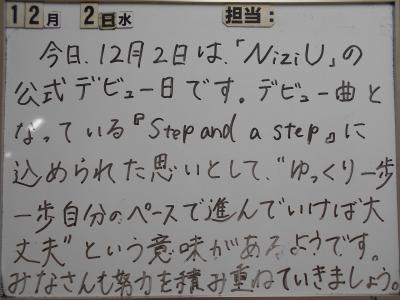 12月 2日水 担当:
今日、12月2日は、「NiziU」の
公式デビュー日です。デビュー曲と
なっている『Step and a step』に
込められた思いとして、“ゆっくり一歩
一歩自分のペースで進んでいけば大
丈夫”という意味があるようです。
みなさんも努力を積み重ねていきましょう。